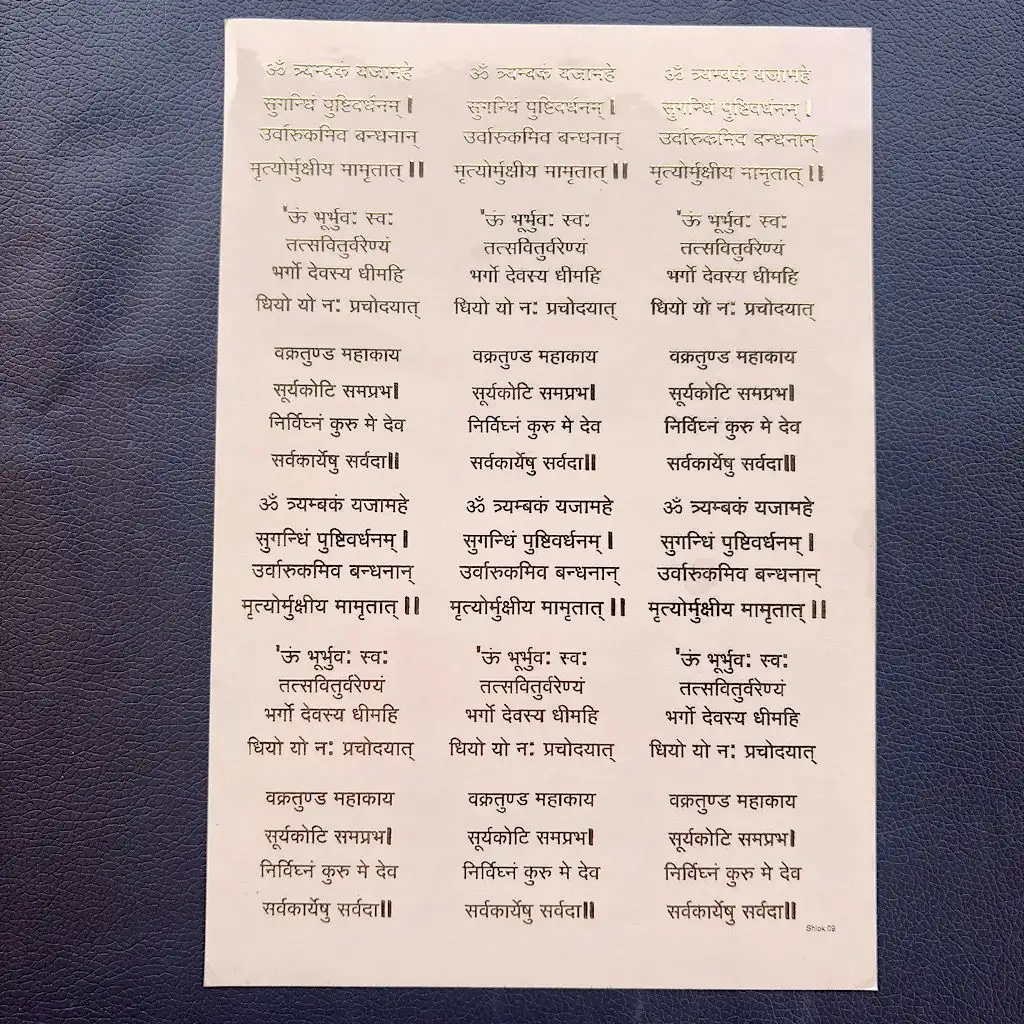 ॐ त्र्यम्बकं यजामहे
सुगन्धिं पुष्टिवर्धनम् |
उर्वारुकमिव बन्धनान्
मृत्योर्मुक्षीय मामृतात् ||
ॐ त्र्यम्बकं यजामहे
सुगन्धिं पुष्टिवर्धनम् |
उर्वारुकमिव बन्धनान्
मृत्योर्मुक्षीय मामृतात् ||
ॐ त्र्यम्बकं यजामहे
सुगन्धिं पुष्टिवर्धनम् |
उर्वारुकमिव बन्धनान्
मृत्योर्मुक्षीय मामृतात् ||
'ऊं भूर्भुव: स्व:
तत्सवितुर्वरेण्यं
भर्गो देवस्य धीमहि
धियो यो न: प्रचोदयात्
'ऊं भूर्भुव: स्व:
तत्सवितुर्वरेण्यं
भर्गो देवस्य धीमहि
धियो यो न: प्रचोदयात्
'ऊं भूर्भुव: स्व:
तत्सवितुर्वरेण्यं
भर्गो देवस्य धीमहि
धियो यो न: प्रचोदयात्
वक्रतुण्ड महाकाय
सूर्यकोटि समप्रभ|
निर्विघ्नं कुरु मे देव
सर्वकार्येषु सर्वदा||
वक्रतुण्ड महाकाय
सूर्यकोटि समप्रभ|
निर्विघ्नं कुरु मे देव
सर्वकार्येषु सर्वदा||
वक्रतुण्ड महाकाय
सूर्यकोटि समप्रभ|
निर्विघ्नं कुरु मे देव
सर्वकार्येषु सर्वदा||
ॐ त्र्यम्बकं यजामहे
सुगन्धिं पुष्टिवर्धनम् |
उर्वारुकमिव बन्धनान्
मृत्योर्मुक्षीय मामृतात् ||
ॐ त्र्यम्बकं यजामहे
सुगन्धिं पुष्टिवर्धनम् |
उर्वारुकमिव बन्धनान्
मृत्योर्मुक्षीय मामृतात् ||
ॐ त्र्यम्बकं यजामहे
सुगन्धिं पुष्टिवर्धनम् |
उर्वारुकमिव बन्धनान्
मृत्योर्मुक्षीय मामृतात् ||
'ऊं भूर्भुव: स्व:
तत्सवितुर्वरेण्यं
भर्गो देवस्य धीमहि
धियो यो न: प्रचोदयात्
'ऊं भूर्भुव: स्व:
तत्सवितुर्वरेण्यं
भर्गो देवस्य धीमहि
धियो यो न: प्रचोदयात्
'ऊं भूर्भुव: स्व:
तत्सवितुर्वरेण्यं
भर्गो देवस्य धीमहि
धियो यो न: प्रचोदयात्
वक्रतुण्ड महाकाय
सूर्यकोटि समप्रभ|
निर्विघ्नं कुरु मे देव
सर्वकार्येषु सर्वदा||
वक्रतुण्ड महाकाय
सूर्यकोटि समप्रभ|
निर्विघ्नं कुरु मे देव
सर्वकार्येषु सर्वदा||
वक्रतुण्ड महाकाय
सूर्यकोटि समप्रभ|
निर्विघ्नं कुरु मे देव
सर्वकार्येषु सर्वदा||
Shlok 09